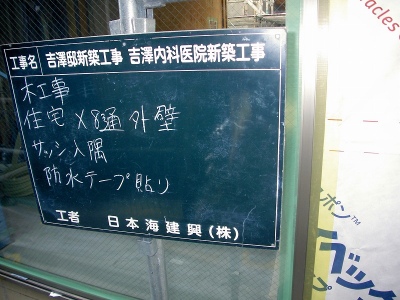 工事名 吉澤邸新築工事 吉澤内科医院新築工事
木工事
住宅 X8通 外壁
サッシ入隅
防水テープ貼り
工者 日本海建興(株)
racles
ポン™
ベック
プ